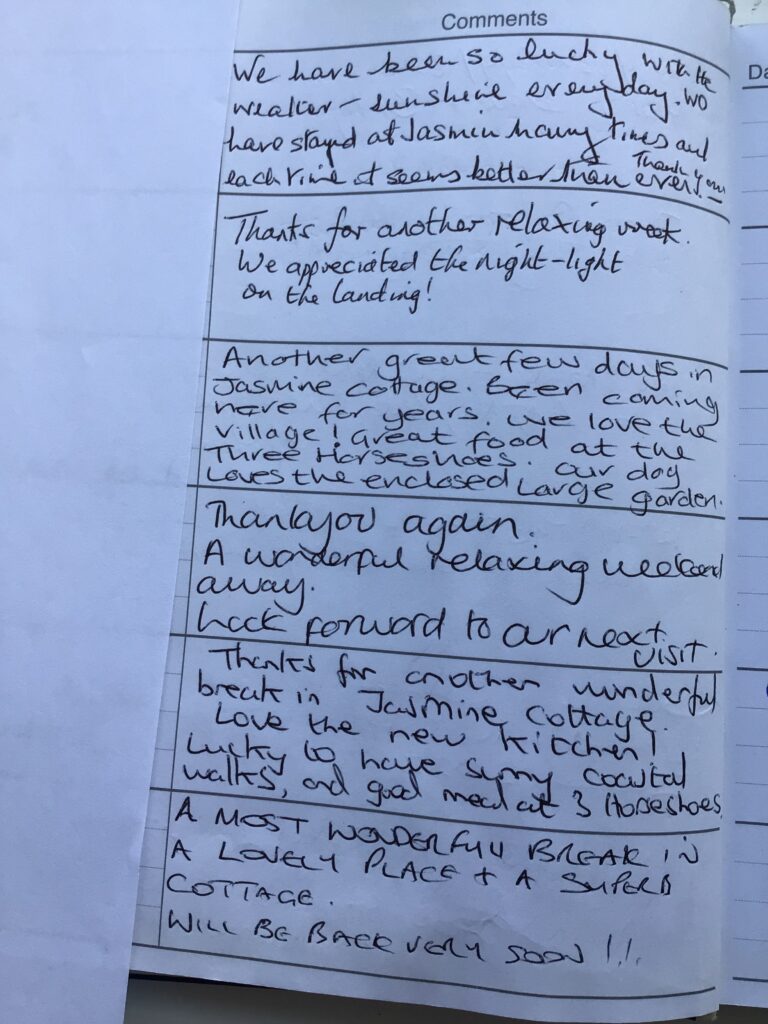 Comments
Da
We have been so lucky with the
weather - sunshine every day. We
have stayed at Jasmin many times and
each time it seems better than ever! - Thank you
Thanks for another relaxing week.
We appreciated the night-light
on the landing!
Another great few days in
Jasmine cottage. Been coming
here for years. We love the
village! Great food at the
Three Horseshoes. Our dog
Loves the enclosed Large garden.
Thankyou again.
A wonderful relaxing weekend
away.
Look forward to our next
visit.
Thanks for another wonderful
break in Jasmine Cottage.
Love the new kitchen!
Lucky to have sunny coastal
walks, and good meal at 3 Horseshoes
A MOST WONDERFUL BREAK IN
A LOVELY PLACE + A SUPERB
COTTAGE.
WILL BE BACK VERY SOON !!!